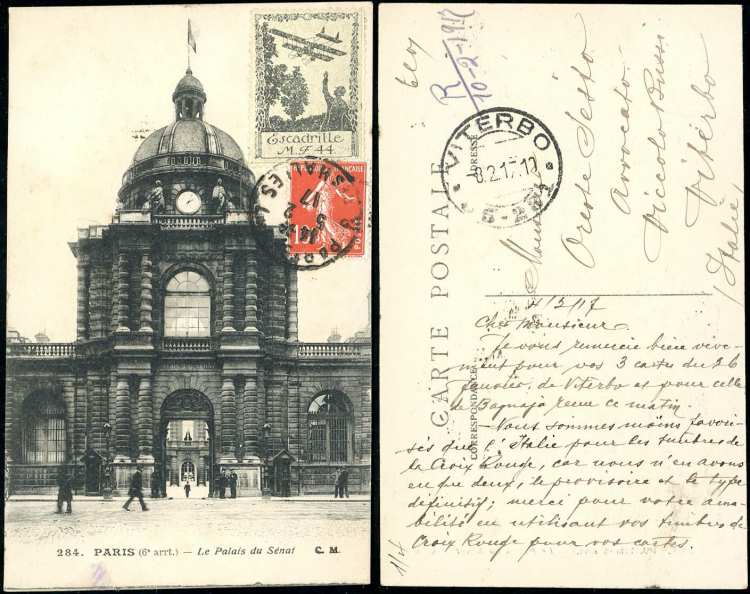 Escadrille
M.F. 44
REPUBLIQUE FRANÇAISE
15
POSTES
PARIS
5 2
17
284. PARIS (6e arrt.) — Le Palais du Sénat C. M.
CARTE POSTALE
CORRESPONDANCE
ADRESSE
R
10-2-1917
VITERBO
8.2.17.12
Monsieur
Oreste Sesto
Avvocato
Viccolo Bussi
Vitérbo
(Italie)
4/2/17
Cher Monsieur
Je vous remercie bien vive-
ment pour vos 3 cartes du 26
Janvier, de Viterbo et pour celle
de Bagnaja reçue ce matin.
- Nous sommes moins favori-
sés que l'Italie pour les timbres de
la Croix Rouge, car nous n'en avons
eu que deux, le provisoire et le type
définitif; merci pour votre ama-
bilité en utilisant vos timbres de
Croix Rouge pour vos cartes.